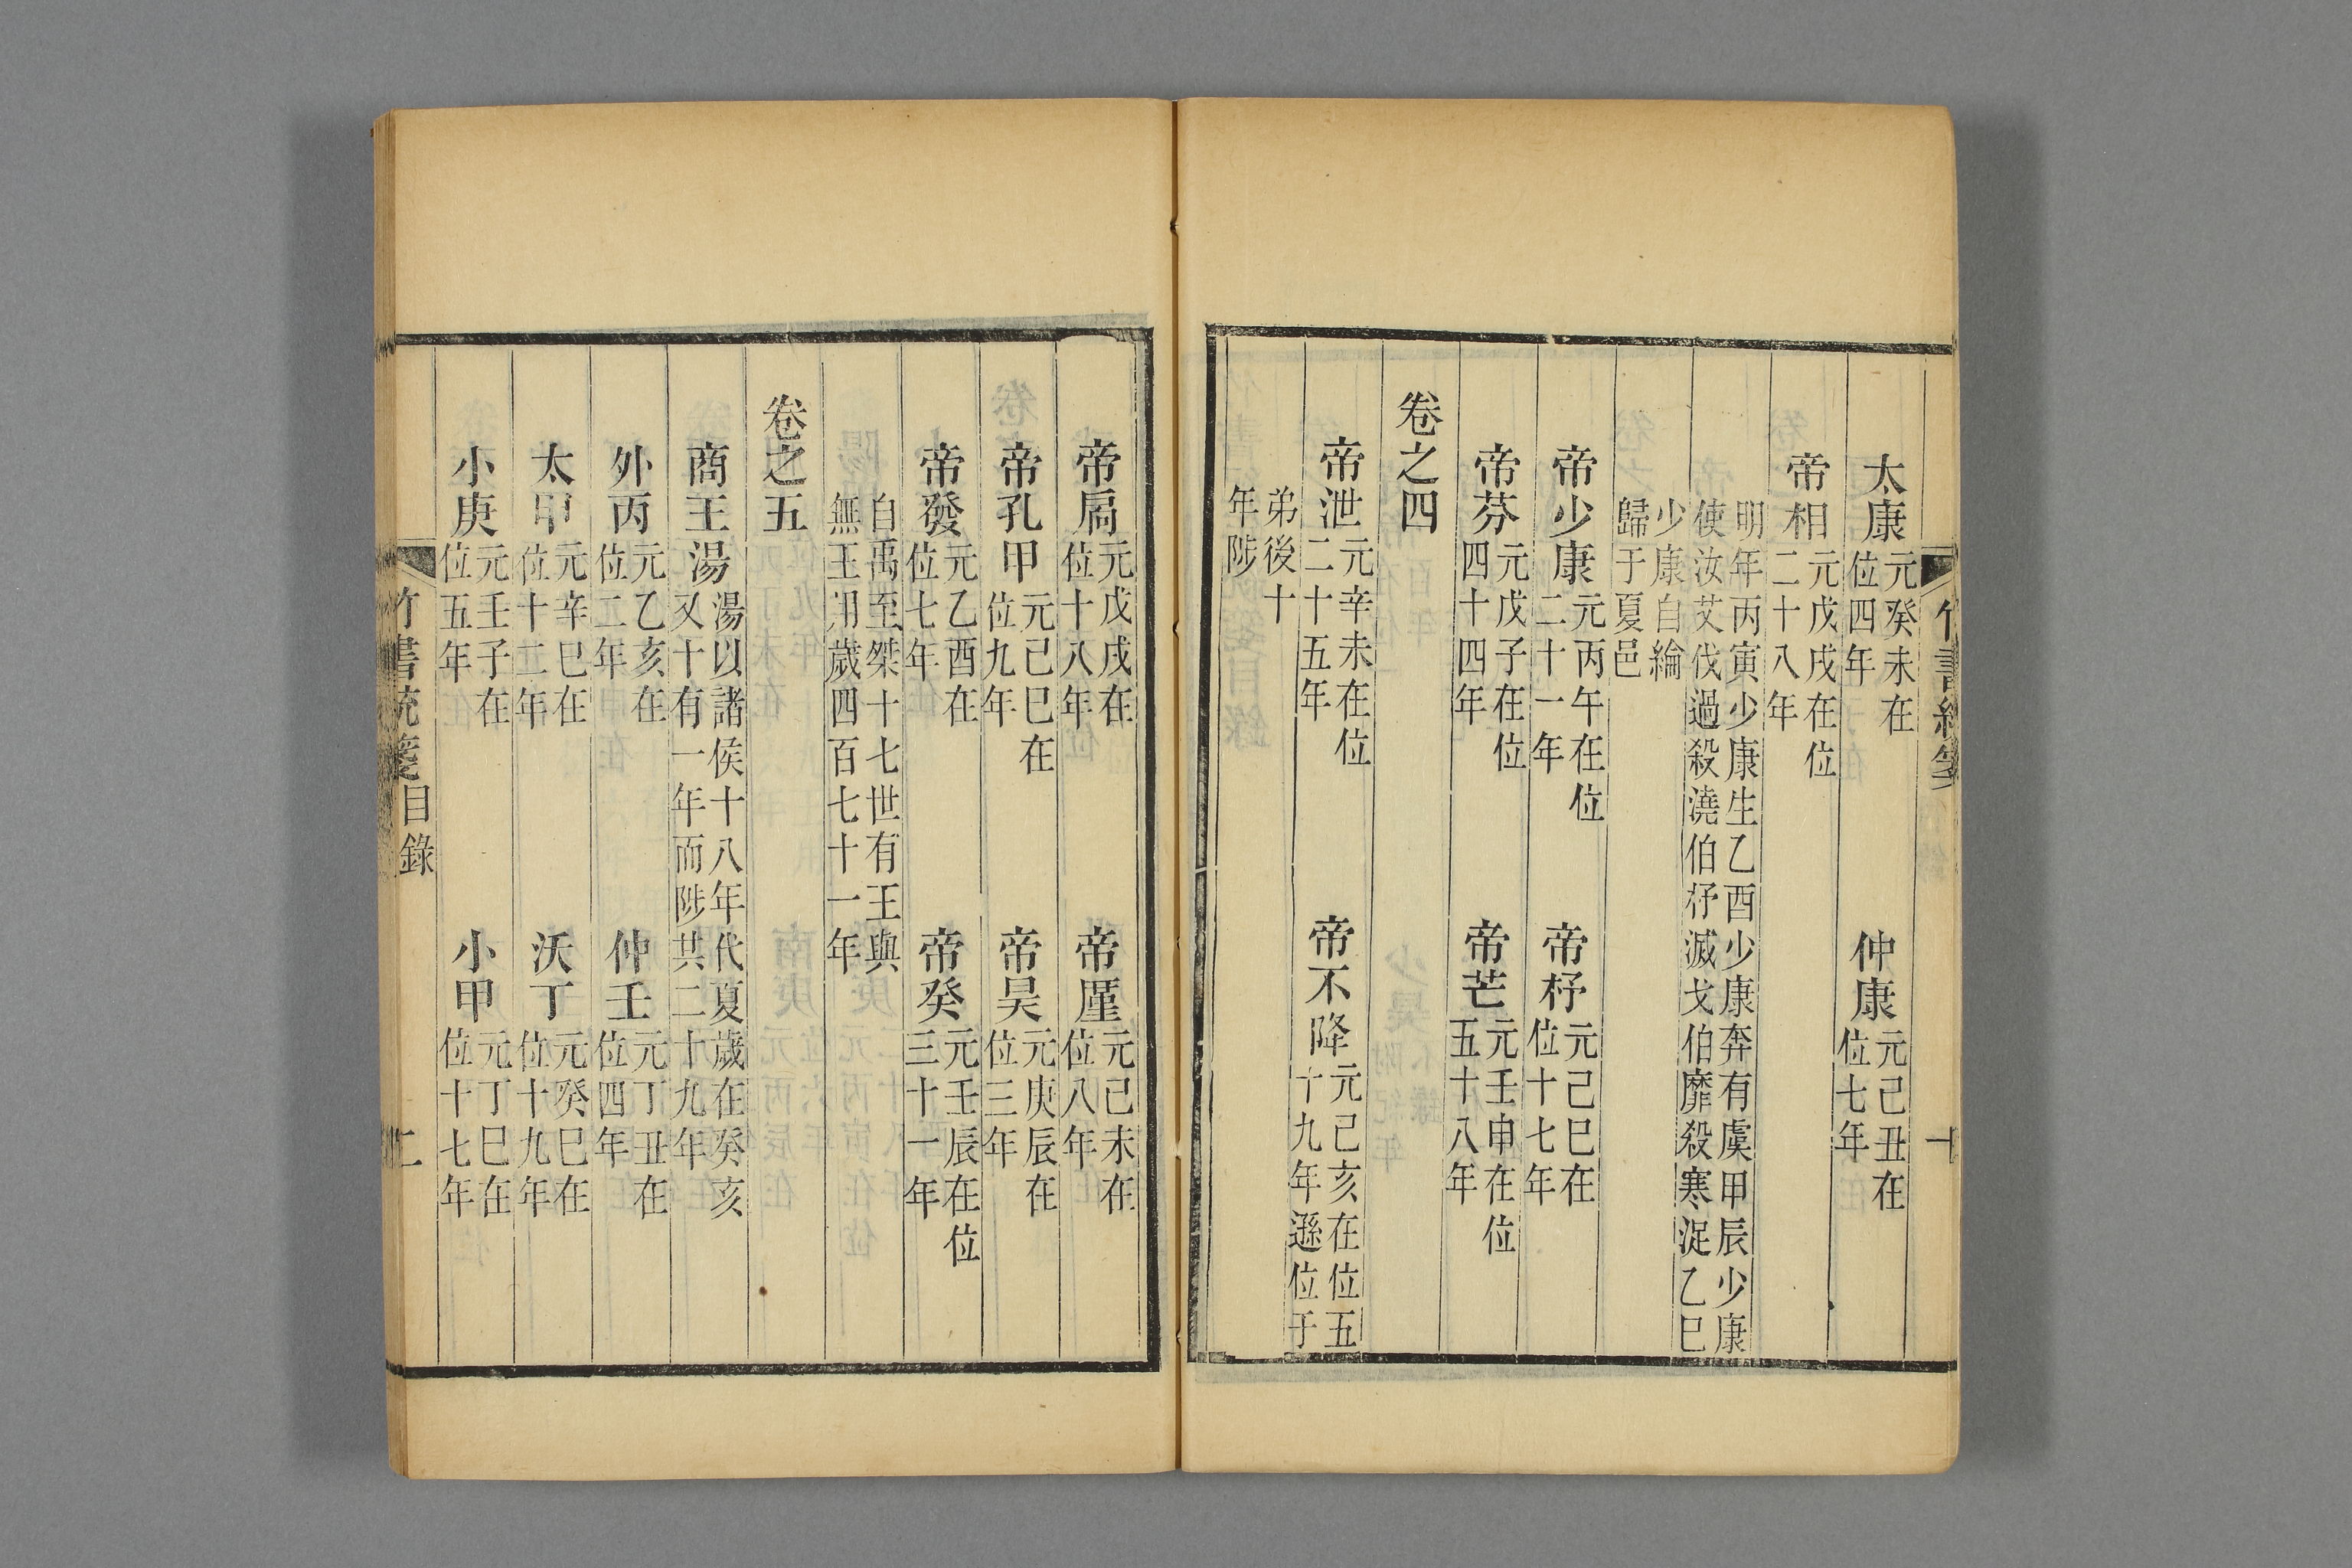 太康元癸未在位四年 仲康元己丑在位七年
帝相元戊戌在位二十八年
明年丙寅少康生乙酉少康奔有虞甲辰少康
使汝艾伐過殺澆伯杼滅戈伯靡殺寒浞乙巳
少康自綸
歸于夏邑
帝少康元丙午在位二十一年 帝杼元己巳在位十七年
帝芬元戊子在位四十四年 帝芒元壬申在位五十八年
卷之四
帝泄元辛未在位二十五年 帝不降元己亥在位五十九年遜位于
弟後十
年陟
帝扃元戊戌在位十八年 帝廑元己未在位八年
帝孔甲元己巳在位九年 帝昊元庚辰在位三年
帝發元乙酉在位七年 帝癸元壬辰在位三十一年
自禹至桀十七世有王與
無王用歲四百七十一年
卷之五
商王湯湯以諸侯十八年代夏歲在癸亥又十有一年而陟共二十九年
外丙元乙亥在位二年 仲壬元丁丑在位四年
太甲元辛巳在位十二年 沃丁元癸巳在位十九年
小庚元壬子在位五年 小甲元丁巳在位十七年
竹書統箋目錄 二